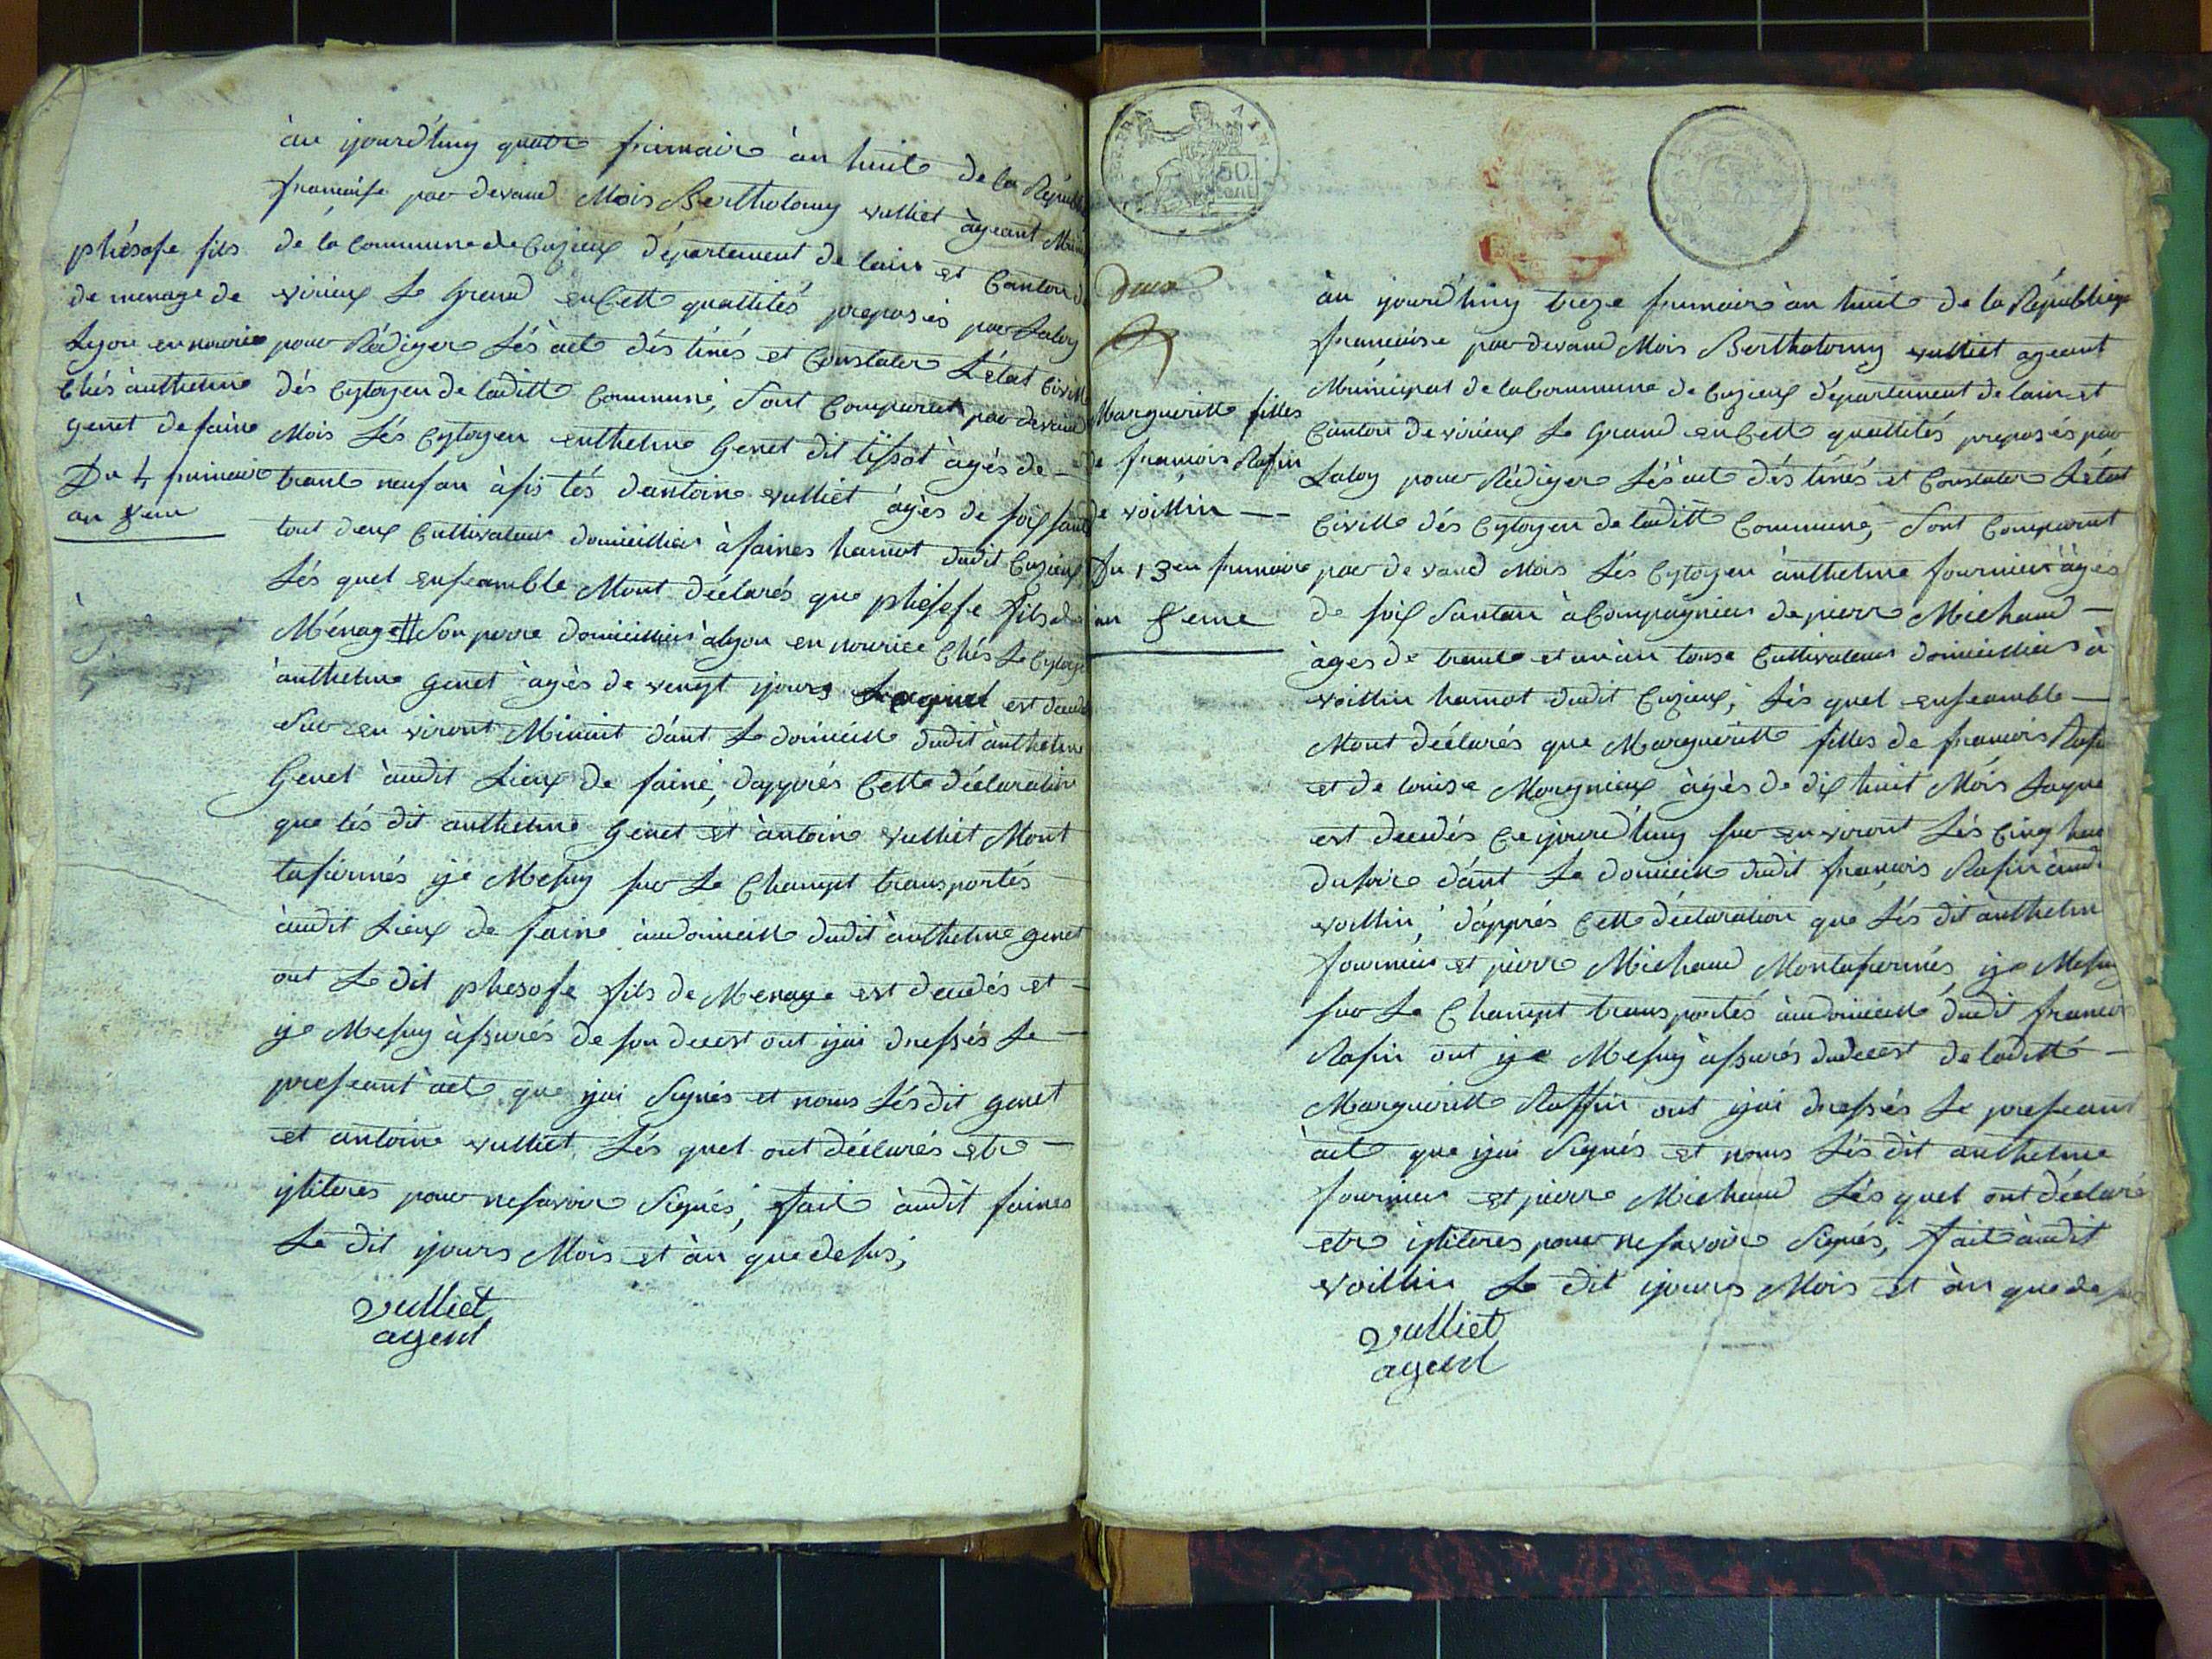 àu jyourd'huy quatre frimaire àn huit de la Républi
francoise par devand Mois Bertholomy vulliet àgeant Muni
de la Commune de Cuzieux département de lain et Canton de
virieux Le Grand en Cette quallités preposés par Laloy
pour Rédiger Lés act déstinés et Constater L'état Civille
dés Cytoyen de laditte Commune, Sont Comparut par devand
Mois Lés Cytoyen enthelme Genet dit tissot àgés de
trante neuf an àsistés dantoine vulliet àgés de soix sante
tout deux Cultivateur domicillier à faines hamot dudit Cuzieux
Lés quel enseamble Mont déclarés que phésose fils de
Ménage # Son perre domicillier àlyon en nourice Chés Le Cytoye
ànthelme Genet àgés de vengt jyours Lequel est decedé
Sur en viront Minuit dant Le domicille dudit ànthelme
Genet àudit Lieux de faine, dapprés Cette déclaration
que lés dit anthelme Genet et àntoine vulliet Mont
tafirmés je Mesuy sur Le Champt transportés
àudit Lieux de faine àudomicille dudit ànthelme genet
out Le dit phesose fils de Menage est decedés et
je Mesuy àssurés de son decest out jyai dressés Le
preseant act que jyai Signés et nous Lésdit genet
et antoine vulliet Lés quel ont déclarés etre
ylliteres pour nesavoir Signés, fait àudit faines
Le dit jyours Mois et àn quedesus,
vulliet
agent
phésose fils
de menage de
Lyon en nourice
Chés àuthelme
genet de faine
Du 4 frimaire
an 8eme
50
deux
Margueritte filles
de francois Rafin
de voillin
Du 13en frimaire
an 8eme
àu jyourd'huy treze frimaire àn huit de la République
francoise par devand Mois Bertholomy vulliet ageant
Municipal de la Commune de Cuzieux département de lain et
Canton de virieux Le Grand en Cette quallités preposés par
Laloy pour Rédiger Lés act déstinés et Constater L'état
Civille dés Cytoyen de laditte Commune, Sont Comparut
par devand Mois Lés Cytoyen ànthelme fournier àgés
de soix Santan àCompagnier de pierre Michaud
àges de trante et un àn tousse Cultivateur domicillier à
voillin hamot dudit Cuzieux, Lés quel enseamble
Mont déclarés que Margueritte filles de francois Rafin
et de louise Morgnieux àgés de dix huit Mois Laque
est decedés Ce jyourd'huy sur en viront Lés Cinq heu
dusoir dant Le domicille dudit francois Rafin àud
voillin, dapprés Cette déclaration que Lés dit ànthelm
fournier et pierre Michaud Montafirmés, je Mesuy
sur Le Champt transportés àudomicille dudit francois
Rafin out je Mesuy àssurés dudecest de laditte
Margueritte Raffin out jyai dressés Le preseant
àct que jyai Signés et nous Lés dit anthelme
fournier et pierre Michaud Lés quel ont déclaré
etre illiteres pour nesavoir Signés, fait àudit
voillin Le dit jyours Mois et àn quede
vulliet
agent